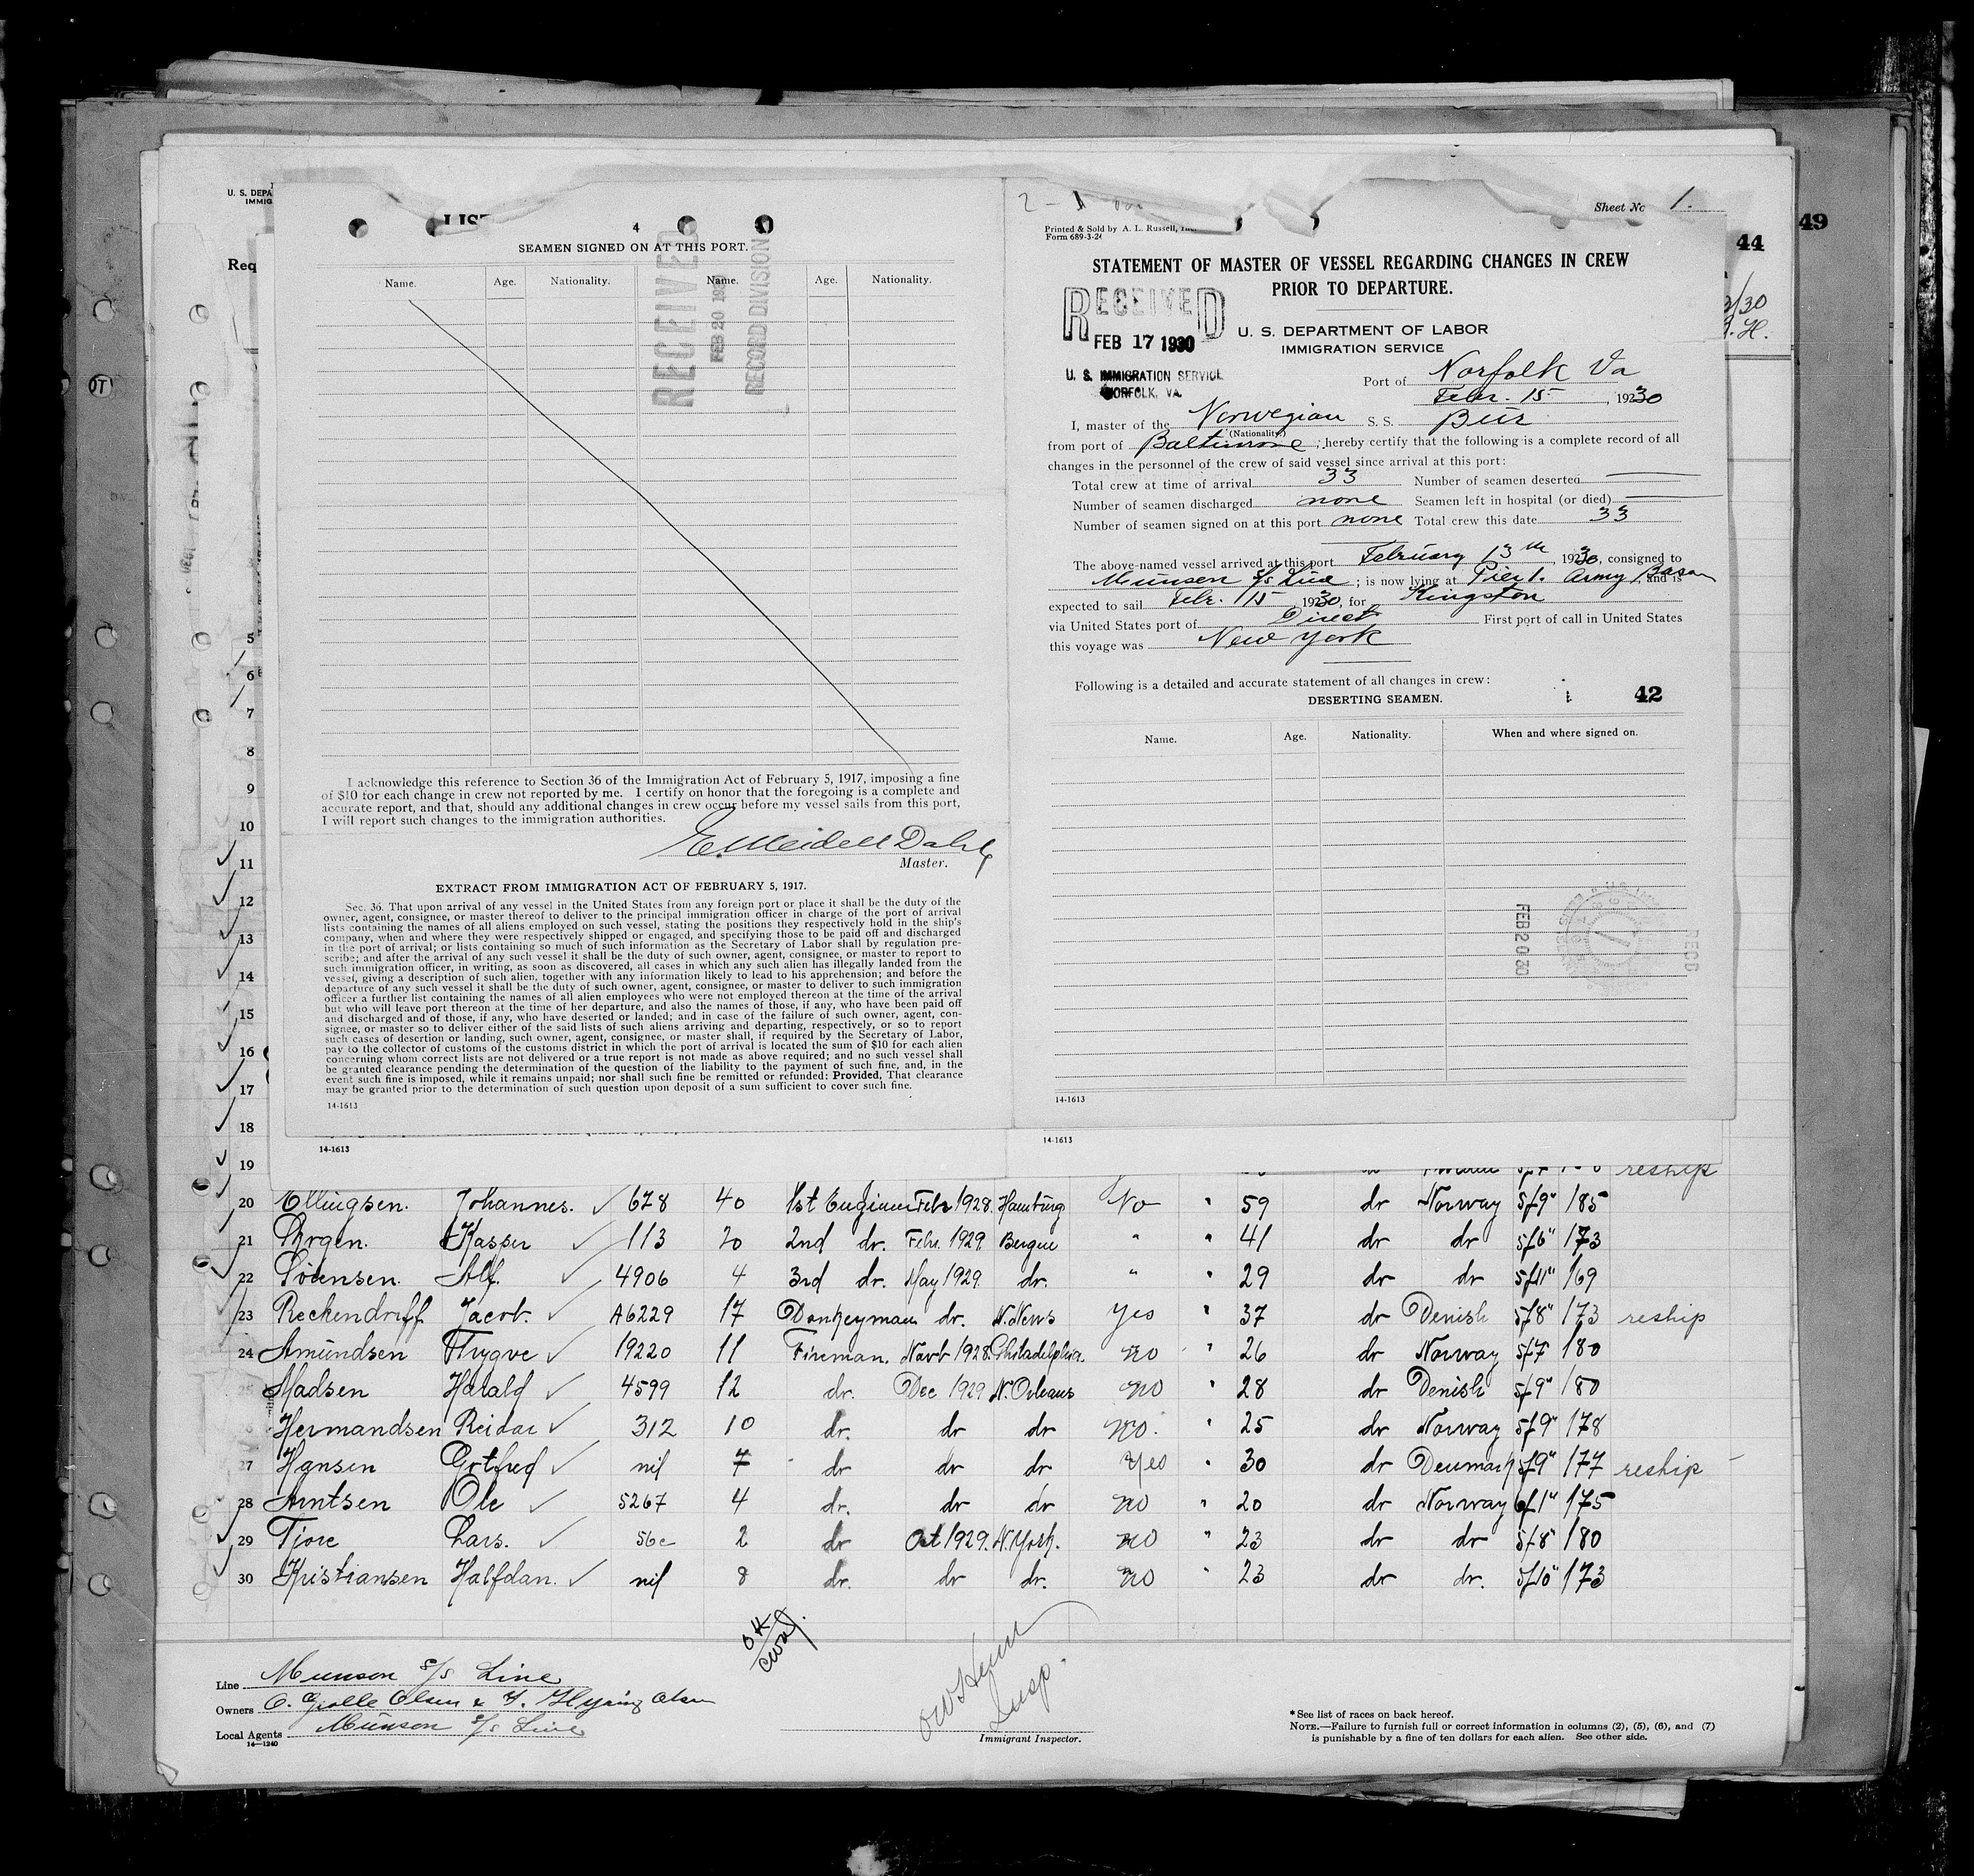 U. S. DEPA
IMMIG
LIST
Req
4
SEAMEN SIGNED ON AT THIS PORT.
Name. Age. Nationality. Name. Age. Nationality.
RECEIVED
FEB 20 1930
RECORD DIVISION
I acknowledge this reference to Section 36 of the Immigration Act of February 5, 1917, imposing a fine
of $10 for each change in crew not reported by me. I certify on honor that the foregoing is a complete and
accurate report, and that, should any additional changes in crew occur before my vessel sails from this port,
I will report such changes to the immigration authorities.
E. Meidell Dahl
Master.
EXTRACT FROM IMMIGRATION ACT OF FEBRUARY 5, 1917.
Sec. 36. That upon arrival of any vessel in the United States from any foreign port or place it shall be the duty of the
owner, agent, consignee, or master thereof to deliver to the principal immigration officer in charge of the port of arrival
lists containing the names of all aliens employed on such vessel, stating the positions they respectively hold in the ship's
company, when and where they were respectively shipped or engaged, and specifying those to be paid off and discharged
in the port of arrival; or lists containing so much of such information as the Secretary of Labor shall by regulation pre-
scribe; and after the arrival of any such vessel it shall be the duty of such owner, agent, consignee, or master to report to
such immigration officer, in writing, as soon as discovered, all cases in which any such alien has illegally landed from the
vessel, giving a description of such alien, together with any information likely to lead to his apprehension; and before the
departure of any such vessel it shall be the duty of such owner, agent, consignee, or master to deliver to such immigration
officer a further list containing the names of all alien employees who were not employed thereon at the time of the arrival
but who will leave port thereon at the time of her departure, and also the names of those, if any, who have been paid off
and discharged and of those, if any, who have deserted or landed; and in case of the failure of such owner, agent, con-
signee, or master so to deliver either of the said lists of such aliens arriving and departing, respectively, or so to report
such cases of desertion or landing, such owner, agent, consignee, or master shall, if required by the Secretary of Labor,
pay to the collector of customs of the customs district in which the port of arrival is located the sum of $10 for each alien
concerning whom correct lists are not delivered or a true report is not made as above required; and no such vessel shall
be granted clearance pending the determination of the question of the liability to the payment of such fine, and, in the
event such fine is imposed, while it remains unpaid; nor shall such fine be remitted or refunded: Provided, That clearance
may be granted prior to the determination of such question upon deposit of a sum sufficient to cover such fine.
14-1613
14-1613
Sheet No 1.
Printed & Sold by A. L. Russell, Inc.
Form 689-3-24
44
49
STATEMENT OF MASTER OF VESSEL REGARDING CHANGES IN CREW
PRIOR TO DEPARTURE.
RECEIVED
FEB 17 1930
U. S. IMMIGRATION SERVICE
NORFOLK, VA.
U. S. DEPARTMENT OF LABOR
IMMIGRATION SERVICE
Port of Norfolk Va
Febr. 15 , 1930
I, master of the Norwegian S. S. Bur
(Nationality)
from port of Baltimore ; hereby certify that the following is a complete record of all
changes in the personnel of the crew of said vessel since arrival at this port:
Total crew at time of arrival 33 Number of seamen deserted
Number of seamen discharged none Seamen left in hospital (or died)
Number of seamen signed on at this port none Total crew this date 33
The above-named vessel arrived at this port February 13th, 1930, consigned to
Munson S/S Line ; is now lying at Pier 1. Army Basan and is
expected to sail Febr. 15 1930, for Kingston
via United States port of Direct First port of call in United States
this voyage was New York
Following is a detailed and accurate statement of all changes in crew:
DESERTING SEAMEN.
42
Name. Age. Nationality. When and where signed on.
FEB 20 30
RECD
14-1613
14-1613
5
6
7
8
9
10
11
12
13
14
15
16
17
18
19 reship
20 Ellingsen. Johannes. 678 40 1st Engineer Febr 1928. Hamburg No " 59 dr Norway 5f9" 185
21 Thrgen. Kasper 113 20 2nd dr. Febr. 1929. Bergen " " 41 dr dr 5f6" 173
22 Sörensen. Alf. 4906 4 3rd dr. May 1929. dr. " " 29 dr dr 5f11" 169
23 Reckendroff Jacob. A6229 17 Donkeyman dr. N.News Yes " 37 dr Denish 5f8" 173 reship
24 Amundsen Trygve 19220 11 Fireman. Novb 1928. Philadelphia. no " 26 dr Norway 5f7 180
25 Madsen Harald 4599 12 dr. Dec 1929 N.Orleans no " 28 dr Denish 5f9" 180
Hermandsen Reidar 312 10 dr. dr dr no. " 25 dr Norway 5f9" 178
27 Hansen Gotfred nil 7 dr dr dr Yes " 30 dr Denmark 5f9" 177 reship
28 Arntsen Ole 5267 4 dr. dr dr no " 20 dr Norway 6f1" 175
29 Tjore Lars. 2 dr Oct 1929. N.York. no " 23 dr dr 5f8" 180
30 Kristiansen Halfdan. nil 8 dr. dr dr. no " 23 dr dr. 5f10" 173
OK
Line Munson S/S Line
Owners O. Olsen &
Local Agents Munson S/S Line
14-1240
Insp.
Immigrant Inspector.
*See list of races on back hereof.
NOTE.—Failure to furnish full or correct information in columns (2), (5), (6), and (7)
is punishable by a fine of ten dollars for each alien. See other side.